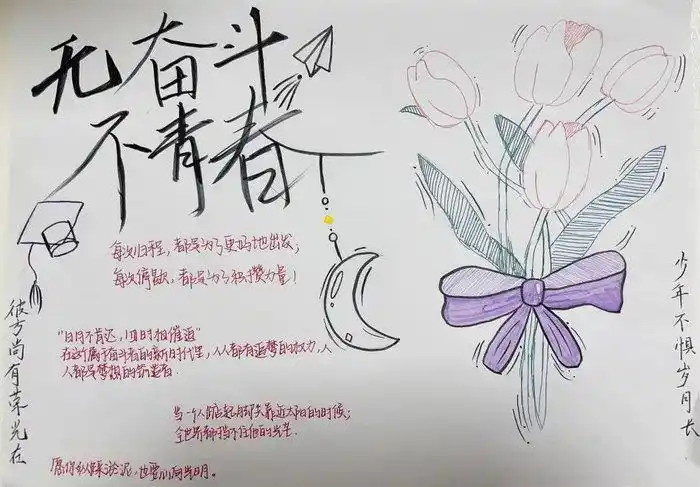 无奋斗
不青春
每次归程，都是为了更好地出发；
每次停歇，都是为了积攒力量！
"日月不肯迟，四时相催迫"
在这个属于奋斗者的新时代里，人人都有追梦的权力，人
人都是梦想的筑造者．
当一个人踮起脚尖靠近太阳的时候；
全世界都挡不住他的光芒．
愿你纵踩淤泥，也要心向光明．
彼方尚有荣光在
少年不惧岁月长